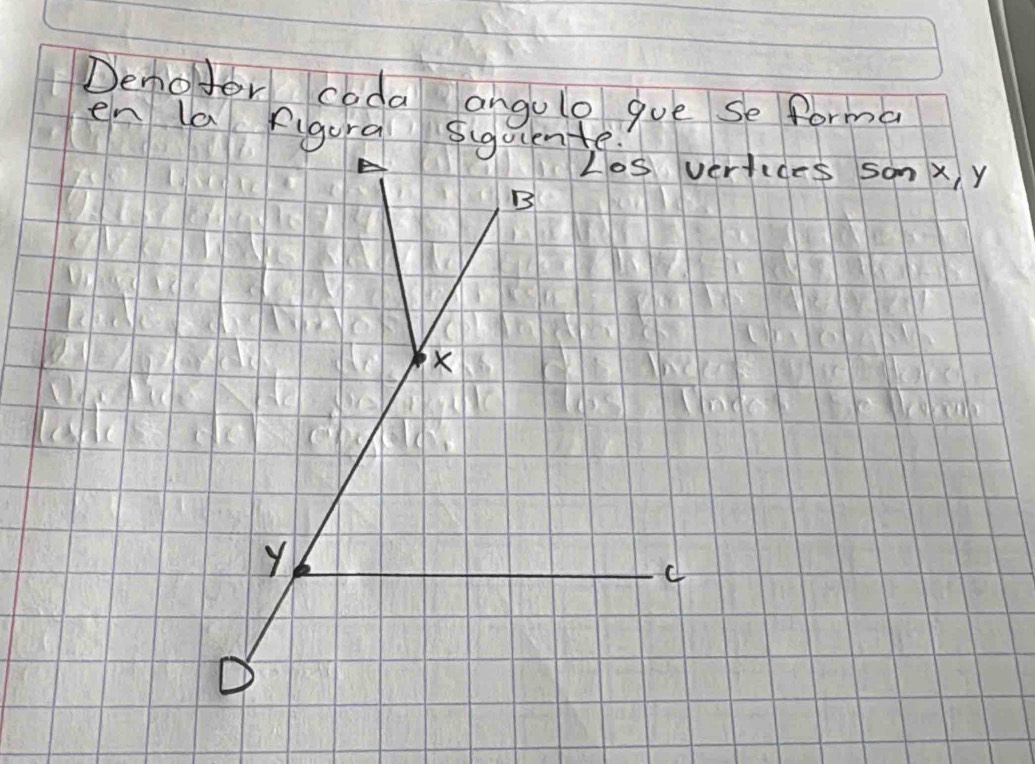 Denotar cada angulo que se forma
en la figura siguiente.
Los vertices son x, y
A
B
x
y
c
D